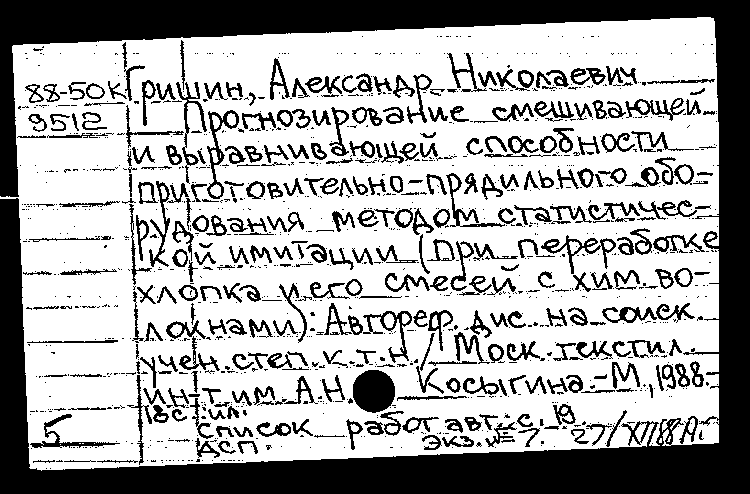 88-50к Гришин, Александр Николаевич
9512 Прогнозирование смешивающей
и выравнивающей способности
приготовительно-прядильного обо-
рудования методом статистичес-
кой имитации (при переработке
хлопка и его смесей с хим. во-
локнами): Автореф. дис. на соиск.
учен. степ. к.т.н. / Моск. текстил.
ин-т им. А.Н. Косыгина.-М., 1988.-
18с.: ил.
5 Список работ авт.: с. 18
ДСП. Экз. № 7. 27/XII88